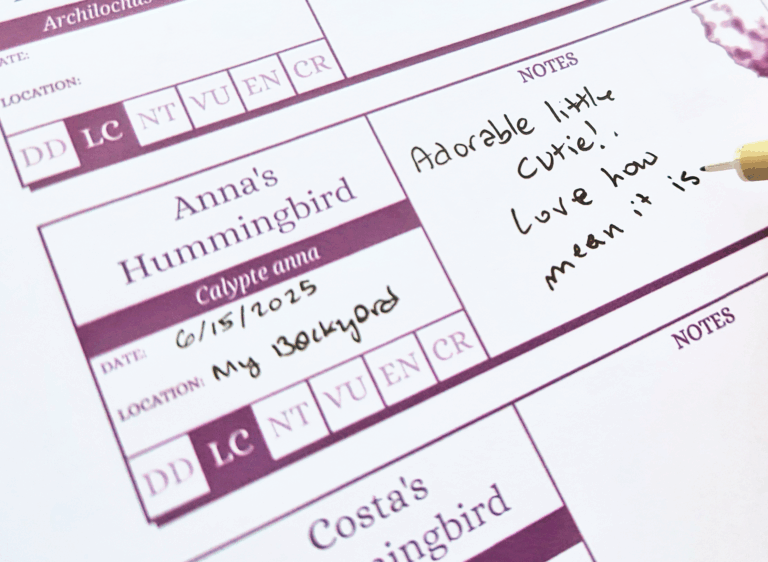 Archilochus
DATE:
LOCATION:
DD LC NT VU EN CR
Anna's
Hummingbird
Calypte anna
DATE: 6/15/2025
LOCATION: My Backyard
DD LC NT VU EN CR
NOTES
Adorable little
cutie!
Love how
mean it is
Costa's
NOTES